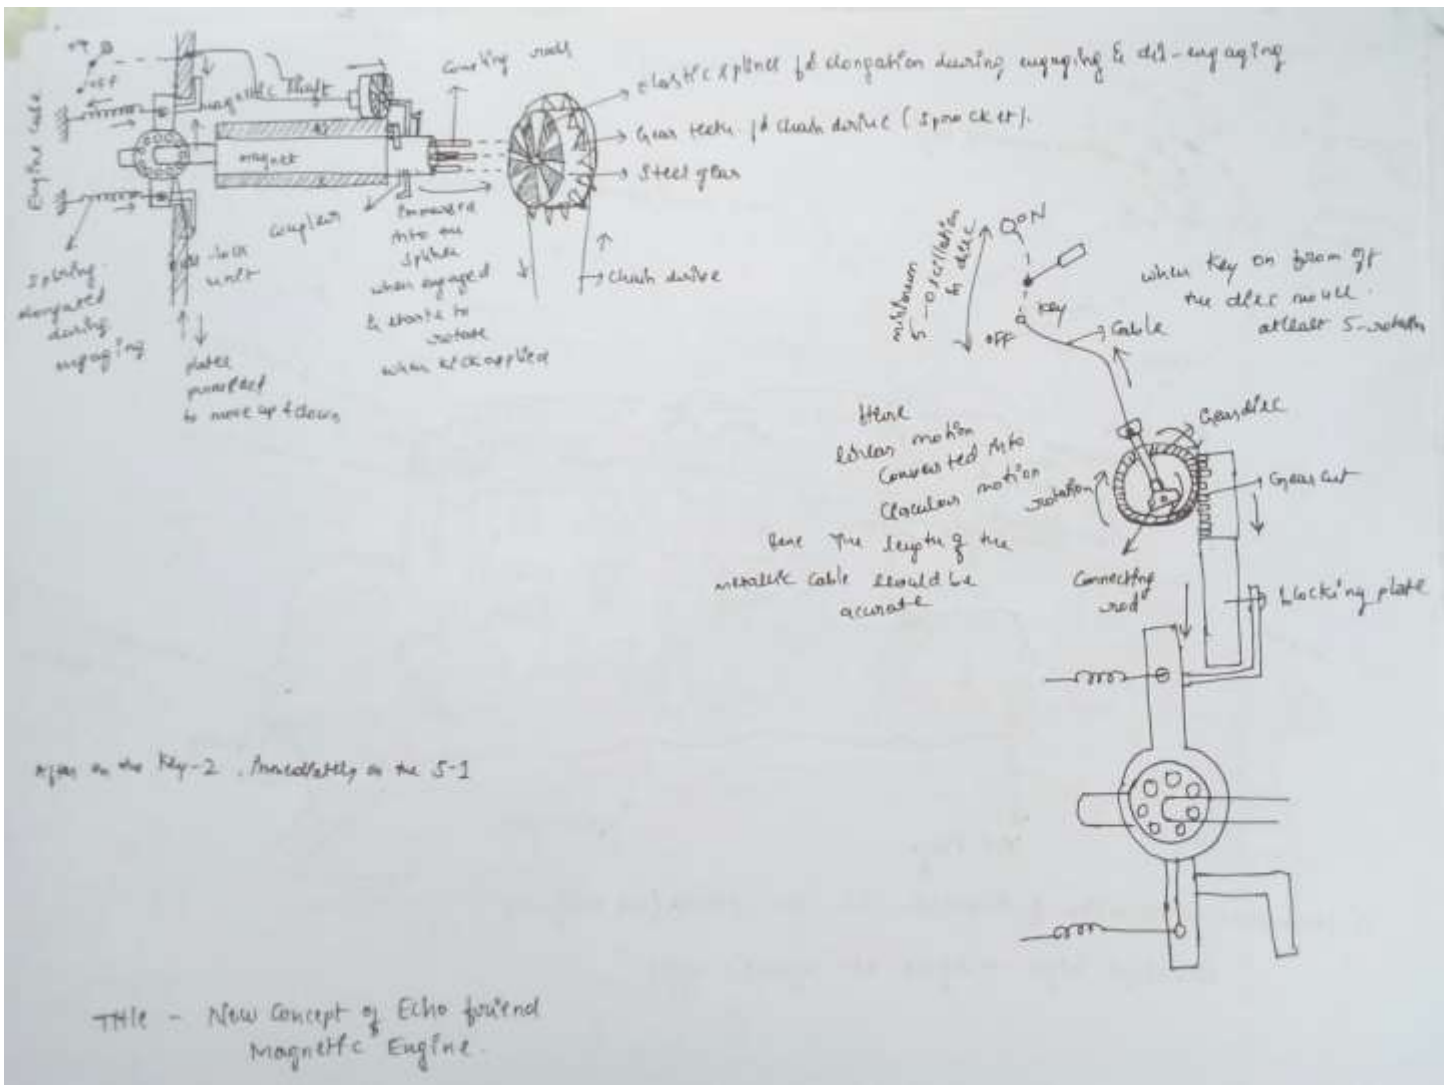 OFF
Engine Case
magnetic shaft
magnet
Coupling rods
elastic splines fd elongation during engaging & dis-engaging
Gear teeth fd chain drive (sprocket).
Steel gear
Chain drive
Coupler
de-lock
unit
Spring
elongated
during
engaging
plates
to move up & down
Immersed
into the
splines
when engaged
& starts to
rotate
when kick applied
minimum
5-oscillation
ON
Key
OFF
Cable
when Key on from off
the disc move
atleast 5-rotation
Here
linear motion
Converted into
Circulour motion
rotation
Gear disc
Gear cut
the length of the
metallic cable should be
accurate
Connecting
rod
blocking plate
After on the Key-2, Immediately on the S-1
Title - New Concept of Echo friend
Magnetic Engine.